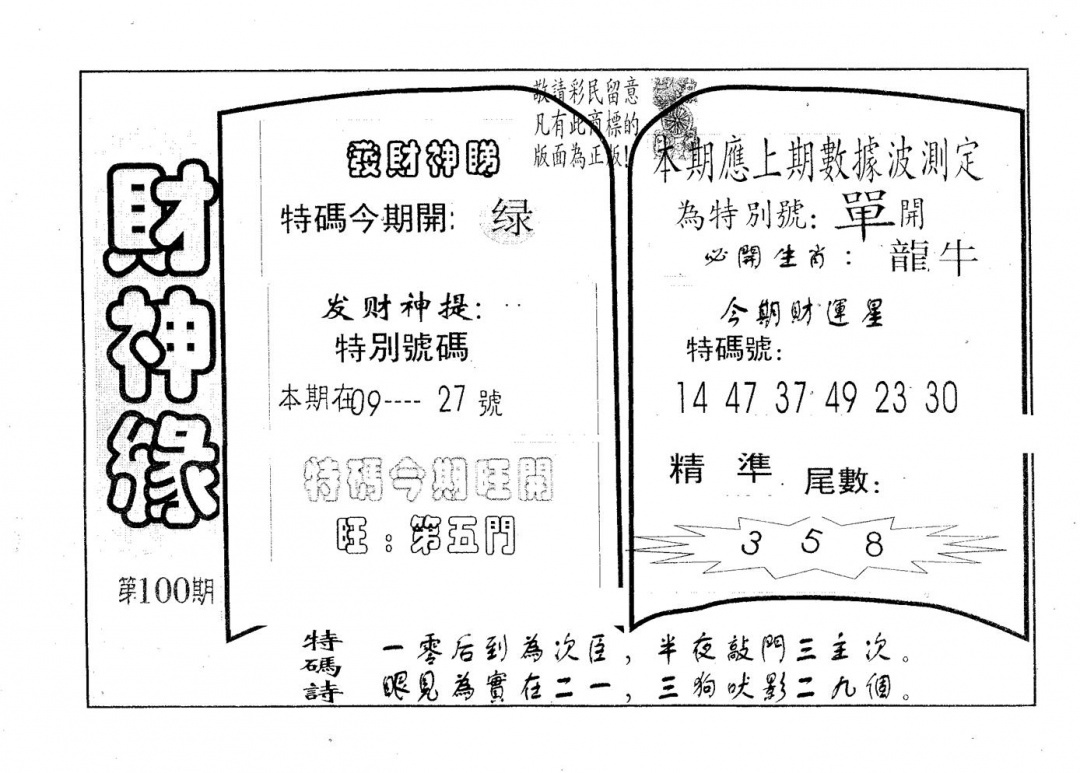 財神緣
第100期
敬請彩民留意
凡有此商標的
版面為正版!
發財神睇
特碼今期開: 绿
发财神提:
特別號碼
本期在09---- 27 號
特碼今期旺開
旺:第五門
本期應上期數據波測定
為特別號: 單開
必開生肖: 龍牛
今期財運星
特碼號:
14 47 37 49 23 30
精 準 尾數:
3 5 8
特碼詩
一零后到為次臣,半夜敲門三主次。
眼見為實在二一,三狗吠影二九個。